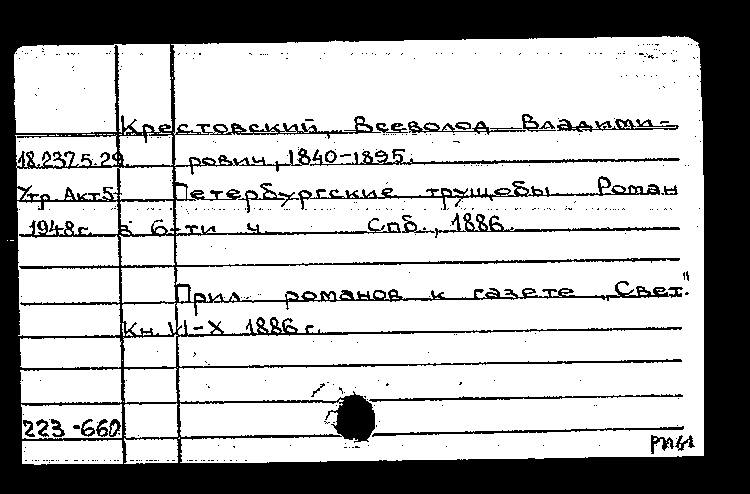 Крестовский, Всеволод Владими=
18.237.5.29. рович, 1840-1895.
Утр. Акт5 Петербургские трущобы Роман
1948г. в 6-ти ч. Спб., 1886.
Прил. романов к газете „Свет."
Кн. VI-X 1886 г.
223-660